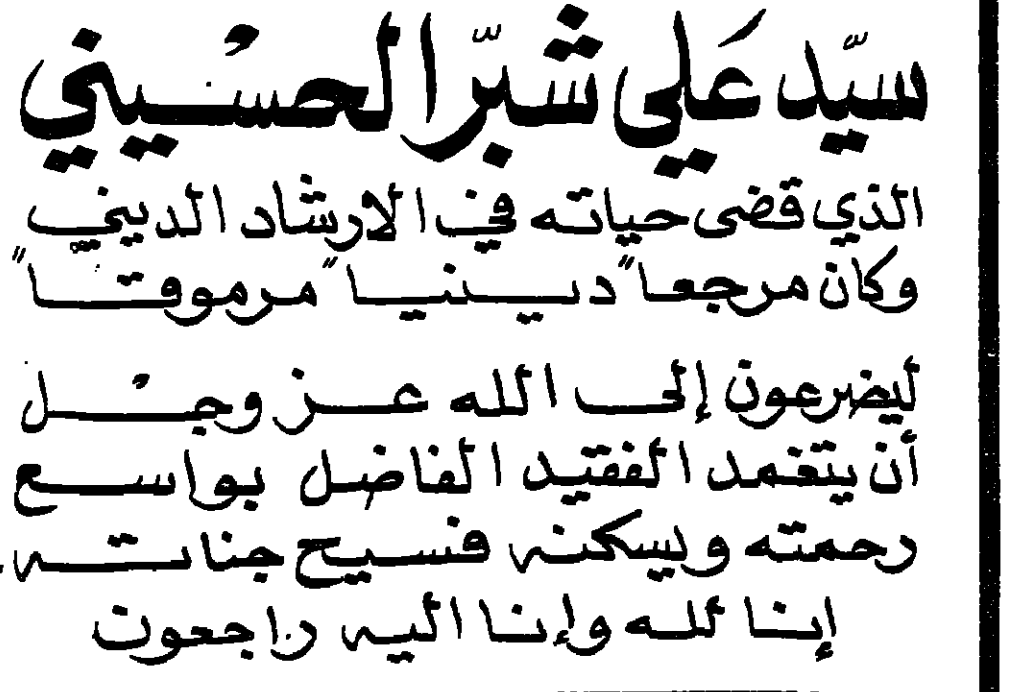 سيّد عَلي شبّر الحسُيني
الذي قضى حياته في الارشاد الديني
وكان مرجعا" دينيا" مرموقا"
ليضرعون إلى الله عز وجُل
أن يتغمد الفقيد الفاضل بواسع
رحمته ويسكنه فسيح جناته.
إنا لله وإنا اليه راجعون